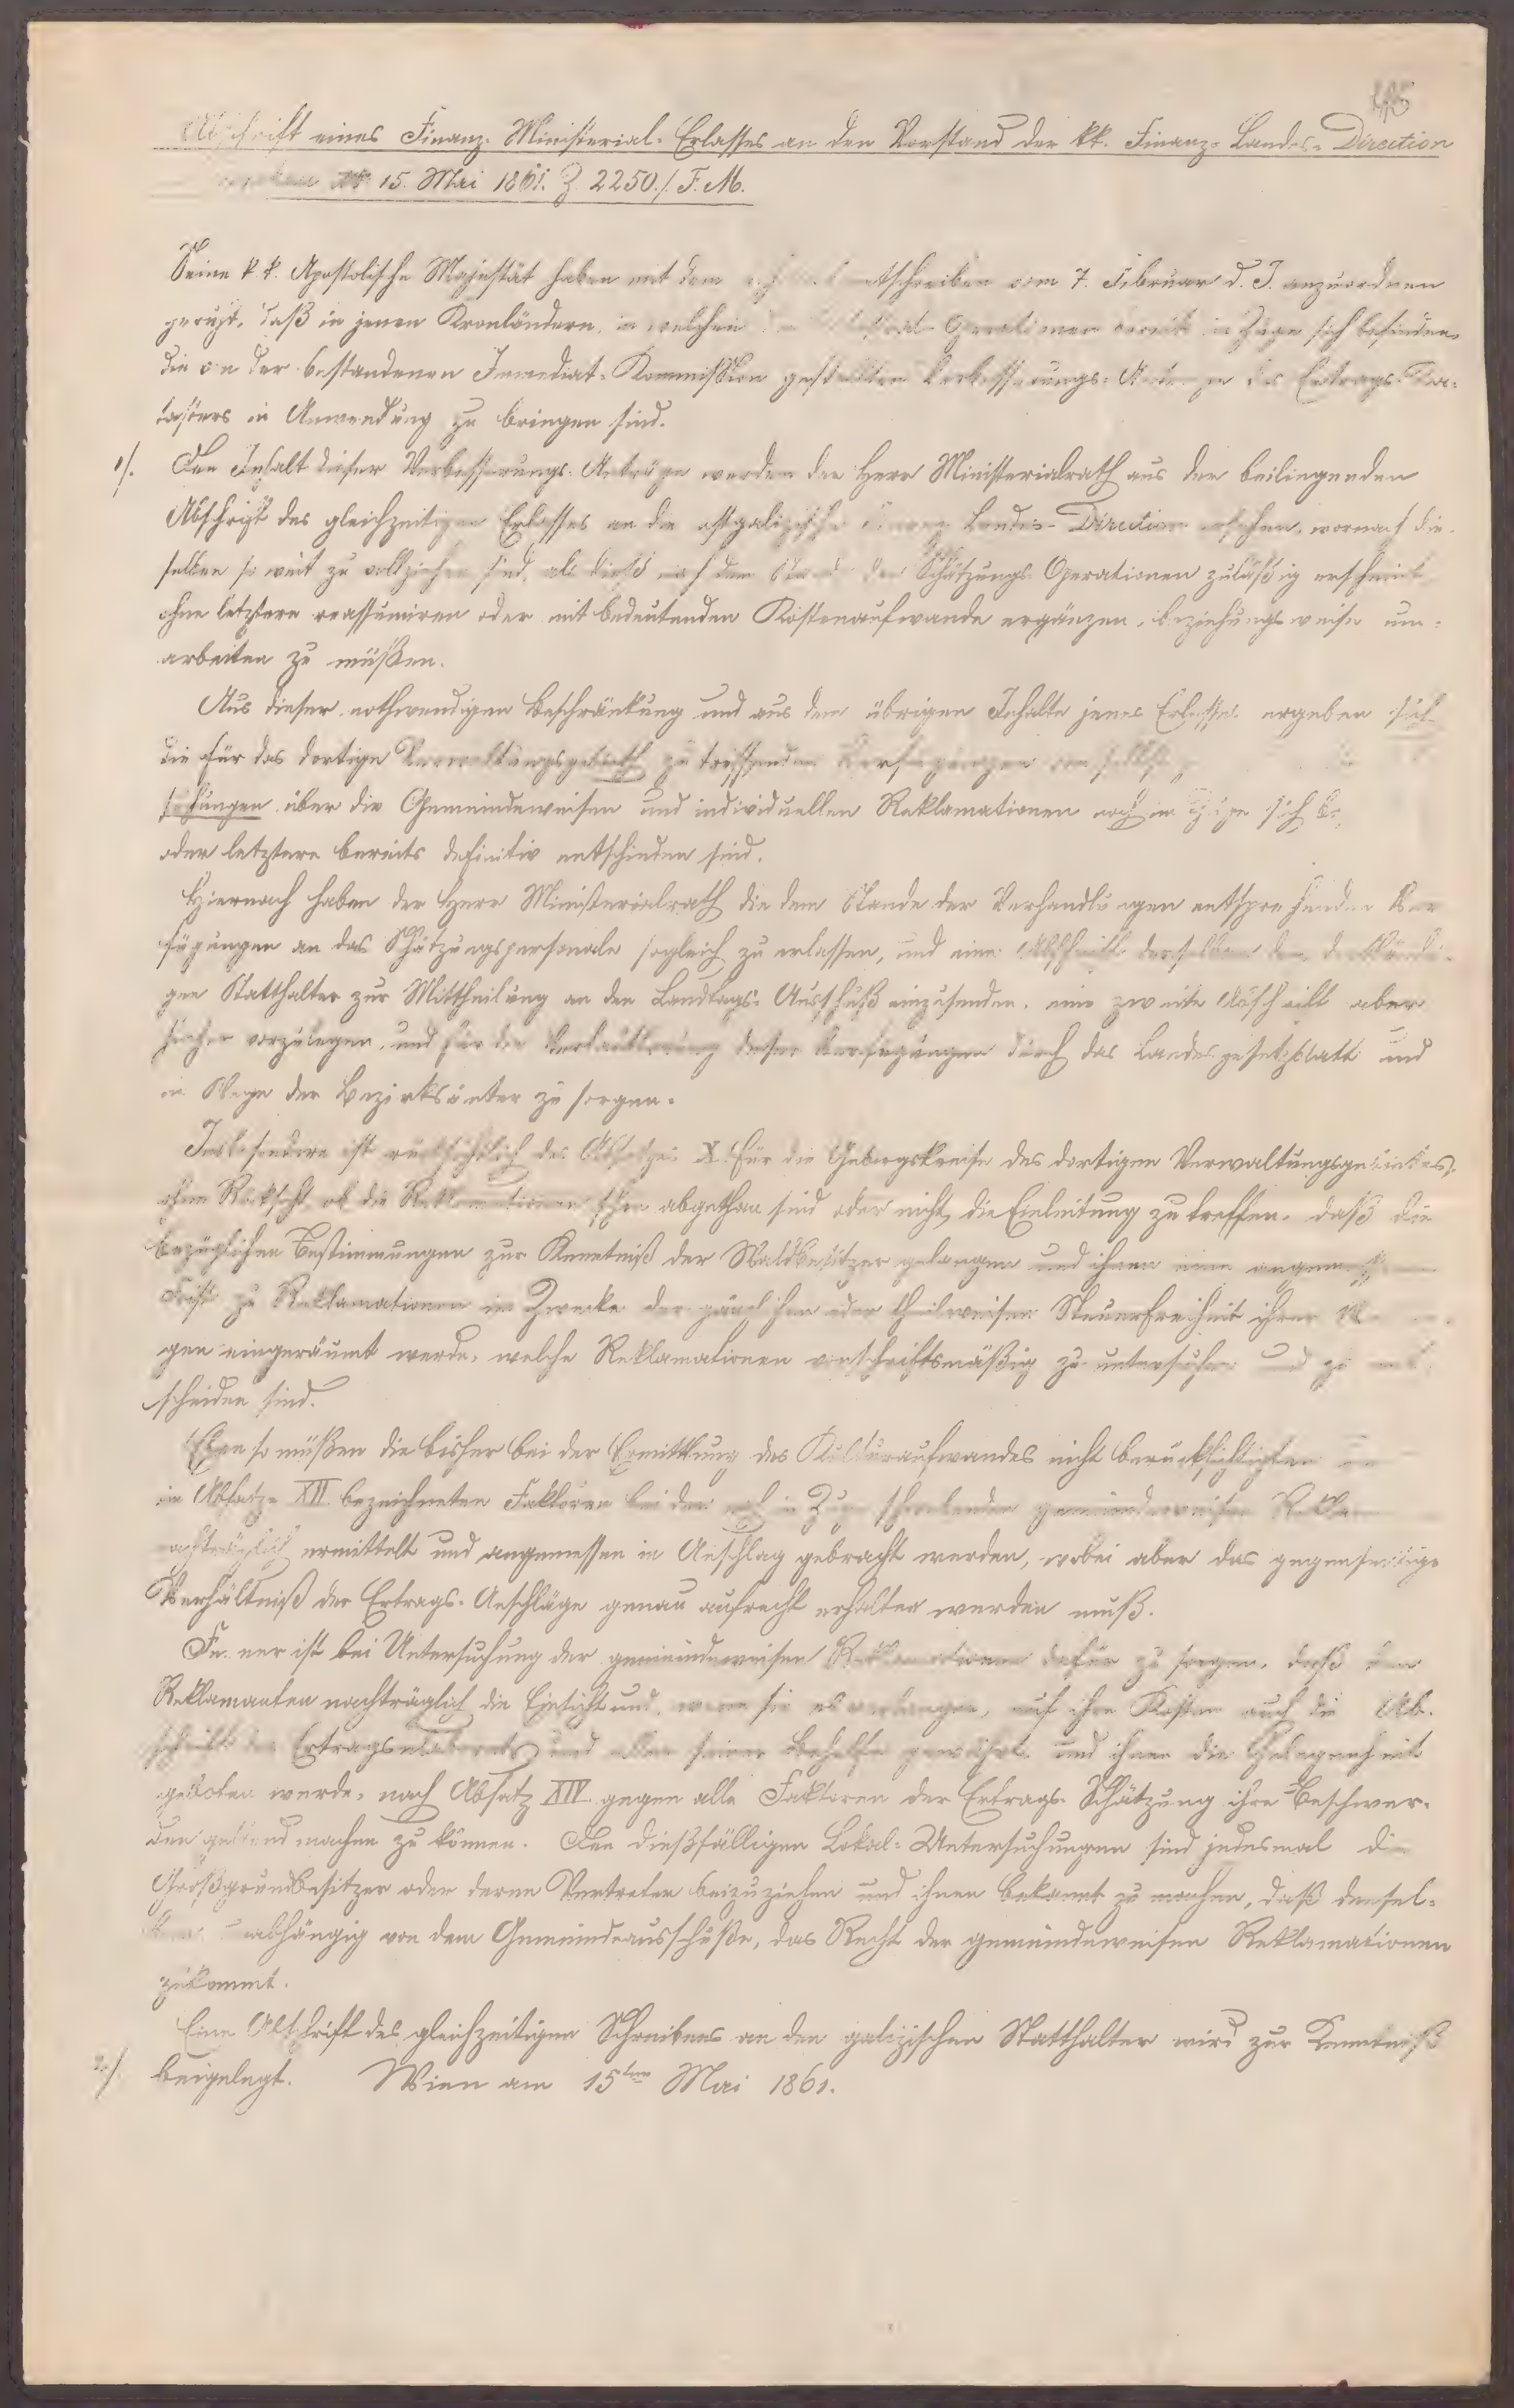 Abschrift eines Finanz-Ministerial-Erlasses an den Vorstand der kk. Finanz-Landes-Direction
15. Mai 1861. Z. 2250./F.M.
Seine k. k. Apostolische Majestät haben mit dem vom 7. Februar d. J. anzuordnen
geruht, daß in jenen Kronländern, in welchen Operationen bereits im Zuge sich befinden,
die von der bestandenen Immediat-Kommission gestellten Verbesserungs-Anträge des Ertrags-Ka-
tasters in Anwendung zu bringen sind.
1/. Den Inhalt dieser Verbesserungs-Anträge werden der Herr Ministerialrath aus der beiliegenden
Abschrift des gleichzeitigen Erlasses an die ostgalizische Finanz-Landes-Direction ersehen, wornach die-
selben so weit zu vollziehen sind, als dieß nach dem Stande der Schätzungs-Operationen zuläßig erscheint
ohne letztere reassumiren oder mit bedeutenden Kostenaufwande ergänzen, beziehungsweise um-
arbeiten zu müßen.
Aus dieser nothwendigen Beschränkung und aus dem übrigen Inhalte jenes Erlasses ergeben sich
die für das dortige Verwaltungsgebieth zu treffenden Verfügungen von selbst
über die Gemeindeweisen und individuellen Reklamationen noch im Zuge sich
oder letztere bereits definitiv entschieden sind.
Hiernach haben der Herr Ministerialrath die dem Stande der Verhandlungen entsprechenden Ver-
fügungen an das Schätzungspersonale sogleich zu erlassen, und eine Abschrift derselben dem
gen Statthalter zur Mittheilung an den Landtags-Ausschuß einzusenden, eine zweite Abschrift aber
hieher vorzulegen, und für die Verlautbarung dieser Verfügungen durch das Landesgesetzblatt und
im Wege der Bezirksämter zu sorgen.
Insbesondere ist rücksichtlich des Absatzes X. für die Gebirgskreise des dortigen Verwaltungsgebietes,
ohne Rücksicht, ob die Reklamationen schon abgethan sind oder nicht, die Einleitung zu treffen, daß die
bezüglichen Bestimmungen zur Kenntniß der Waldbesitzer gelangen und ihnen eine angemessene
Frist zu Reklamationen im Zwecke der gänzlichen oder theilweisen Steuerfreiheit ihrer
gen eingeräumt werde, welche Reklamationen vorschriftsmäßig zu untersuchen und zu ent-
scheiden sind.
Eben so müßen die bisher bei der Ermittlung des Kulturaufwandes nicht berücksichtigten
im Absatze XII. bezeichneten Faktoren bei den noch im Zuge schwebenden gemeindeweisen
nachträglich ermittelt und angemessen in Anschlag gebracht werden, wobei aber das gegenseitige
Verhältniß der Ertrags-Anschläge genau aufrecht erhalten werden muß.
Ferner ist bei Untersuchung der gemeindeweisen Reklamationen dafür zu sorgen, daß den
Reklamanten nachträglich die Einsicht und, wenn sie es verlangen, auf ihre Kosten auch die Ab-
schrift des Ertragselaborats und aller seiner Behelfe gewährt, und ihnen die Gelegenheit
geboten werde, nach Absatz XIV. gegen alle Faktoren der Ertrags-Schätzung ihre Beschwer-
den geltend machen zu können. Den dießfälligen Lokal-Untersuchungen sind jedesmal die
Großgrundbesitzer oder deren Vertreter beizuziehen und ihnen bekannt zu machen, daß densel-
ben, unabhängig von dem Gemeindeausschuße, das Recht der gemeindeweisen Reklamationen
zukommt.
Eine Abschrift des gleichzeitigen Schreibens an den galizischen Statthalter wird zur Kenntniß
2./. beigelegt. Wien am 15ten Mai 1861.